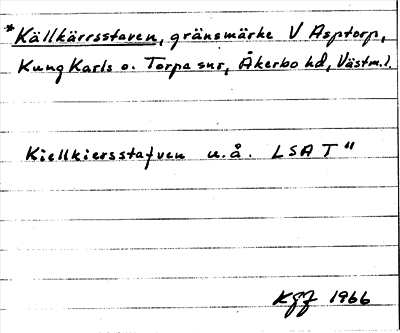 *Källkärrsstaven, gränsmärke V Asptorp,
Kung Karls o. Torpa snr, Åkerbo hd, Västm.l.
Kiellkiersstafven u.å. LSA T"
KGJ 1966